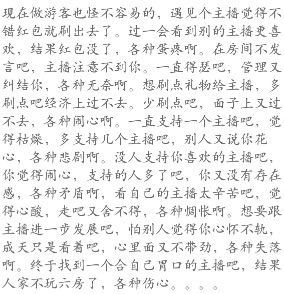 现在做游客也怪不容易的，遇见个主播觉得不
错红包就刷出去了。过一会看到别的主播更喜
欢，结果红包没了，各种蛋疼啊。在房间不发
言吧，主播注意不到你。一直得瑟吧，管理又
纠结你，各种无奈啊。想刷点礼物给主播，多
刷点吧经济上过不去。少刷点吧，面子上又过
不去，各种闹心啊。一直支持一个主播吧，觉
得枯燥，多支持几个主播吧，别人又说你花
心，各种悲剧啊。没人支持你喜欢的主播吧，
你觉得闹心，支持的人多了吧，你又没有存在
感，各种矛盾啊，看自己的主播太辛苦吧，觉
得心酸，走吧又舍不得，各种惆怅啊。想要跟
主播进一步发展吧，怕别人觉得你心怀不轨，
成天只是看着吧，心里面又不带劲，各种失落
啊。终于找到一个合自己胃口的主播吧，结果
人家不玩六房了，各种伤心。。。。